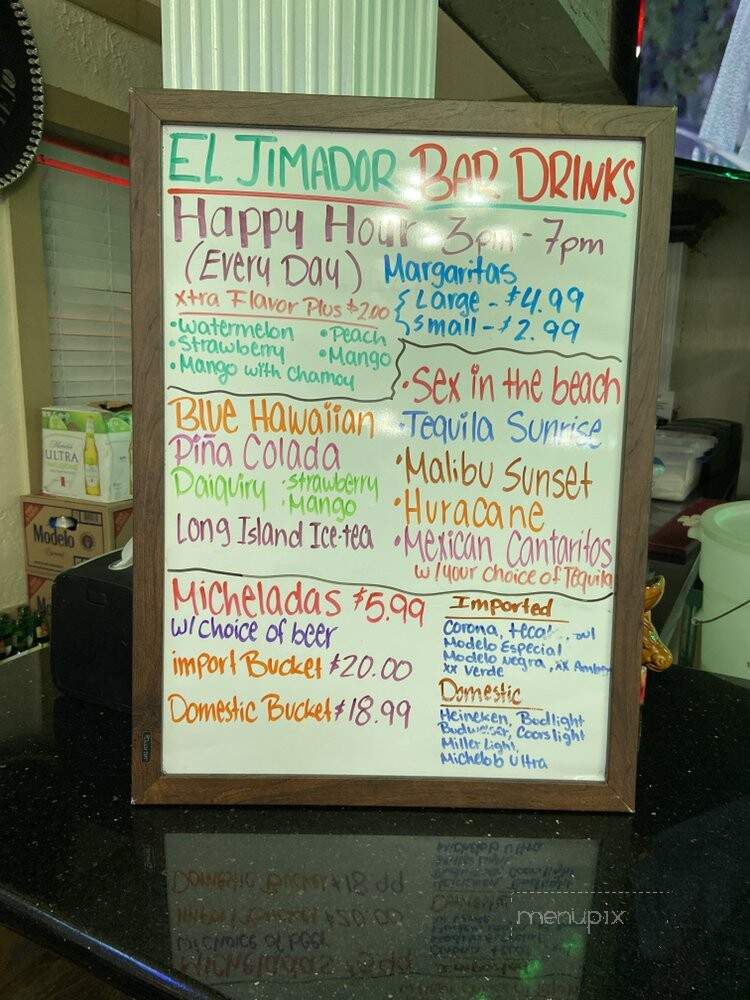 EL JIMADOR BAR DRINKS
Happy Hour 3pm - 7pm
(Every Day)
Margaritas
Large - $4.99
Small - $2.99
xtra Flavor Plus $2.00
•Watermelon •Peach
•Strawberry •Mango
•Mango with Chamoy
•Sex in the beach
•Tequila Sunrise
•Malibu Sunset
•Huracane
•Mexican Cantaritos
w/your choice of Tequila
Blue Hawaiian
Piña Colada
Daiquiry •strawberry
•Mango
Long Island Ice-tea
Micheladas $5.99
w/choice of beer
import Bucket $20.00
Domestic Bucket $18.99
Imported
Corona,
Modelo Especial
Modelo Negra, XX Amber
XX Verde
Domestic
Heineken, Budlight
Budweiser, Coorslight
Miller Light,
Michelob Ultra
ULTRA
Modelo
Especial
menupix